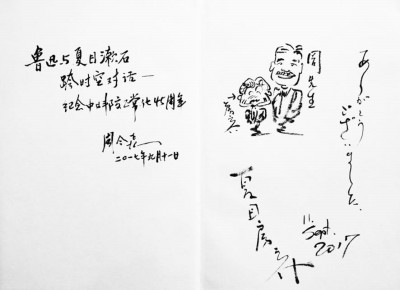 鲁迅与夏目漱石
跨时空对话—
纪念中日邦交正常化45周年
周令飞
二〇一七年九月十一日
ありがとう
ございました。
周先生
夏目房之介
11.
Sept.
2017